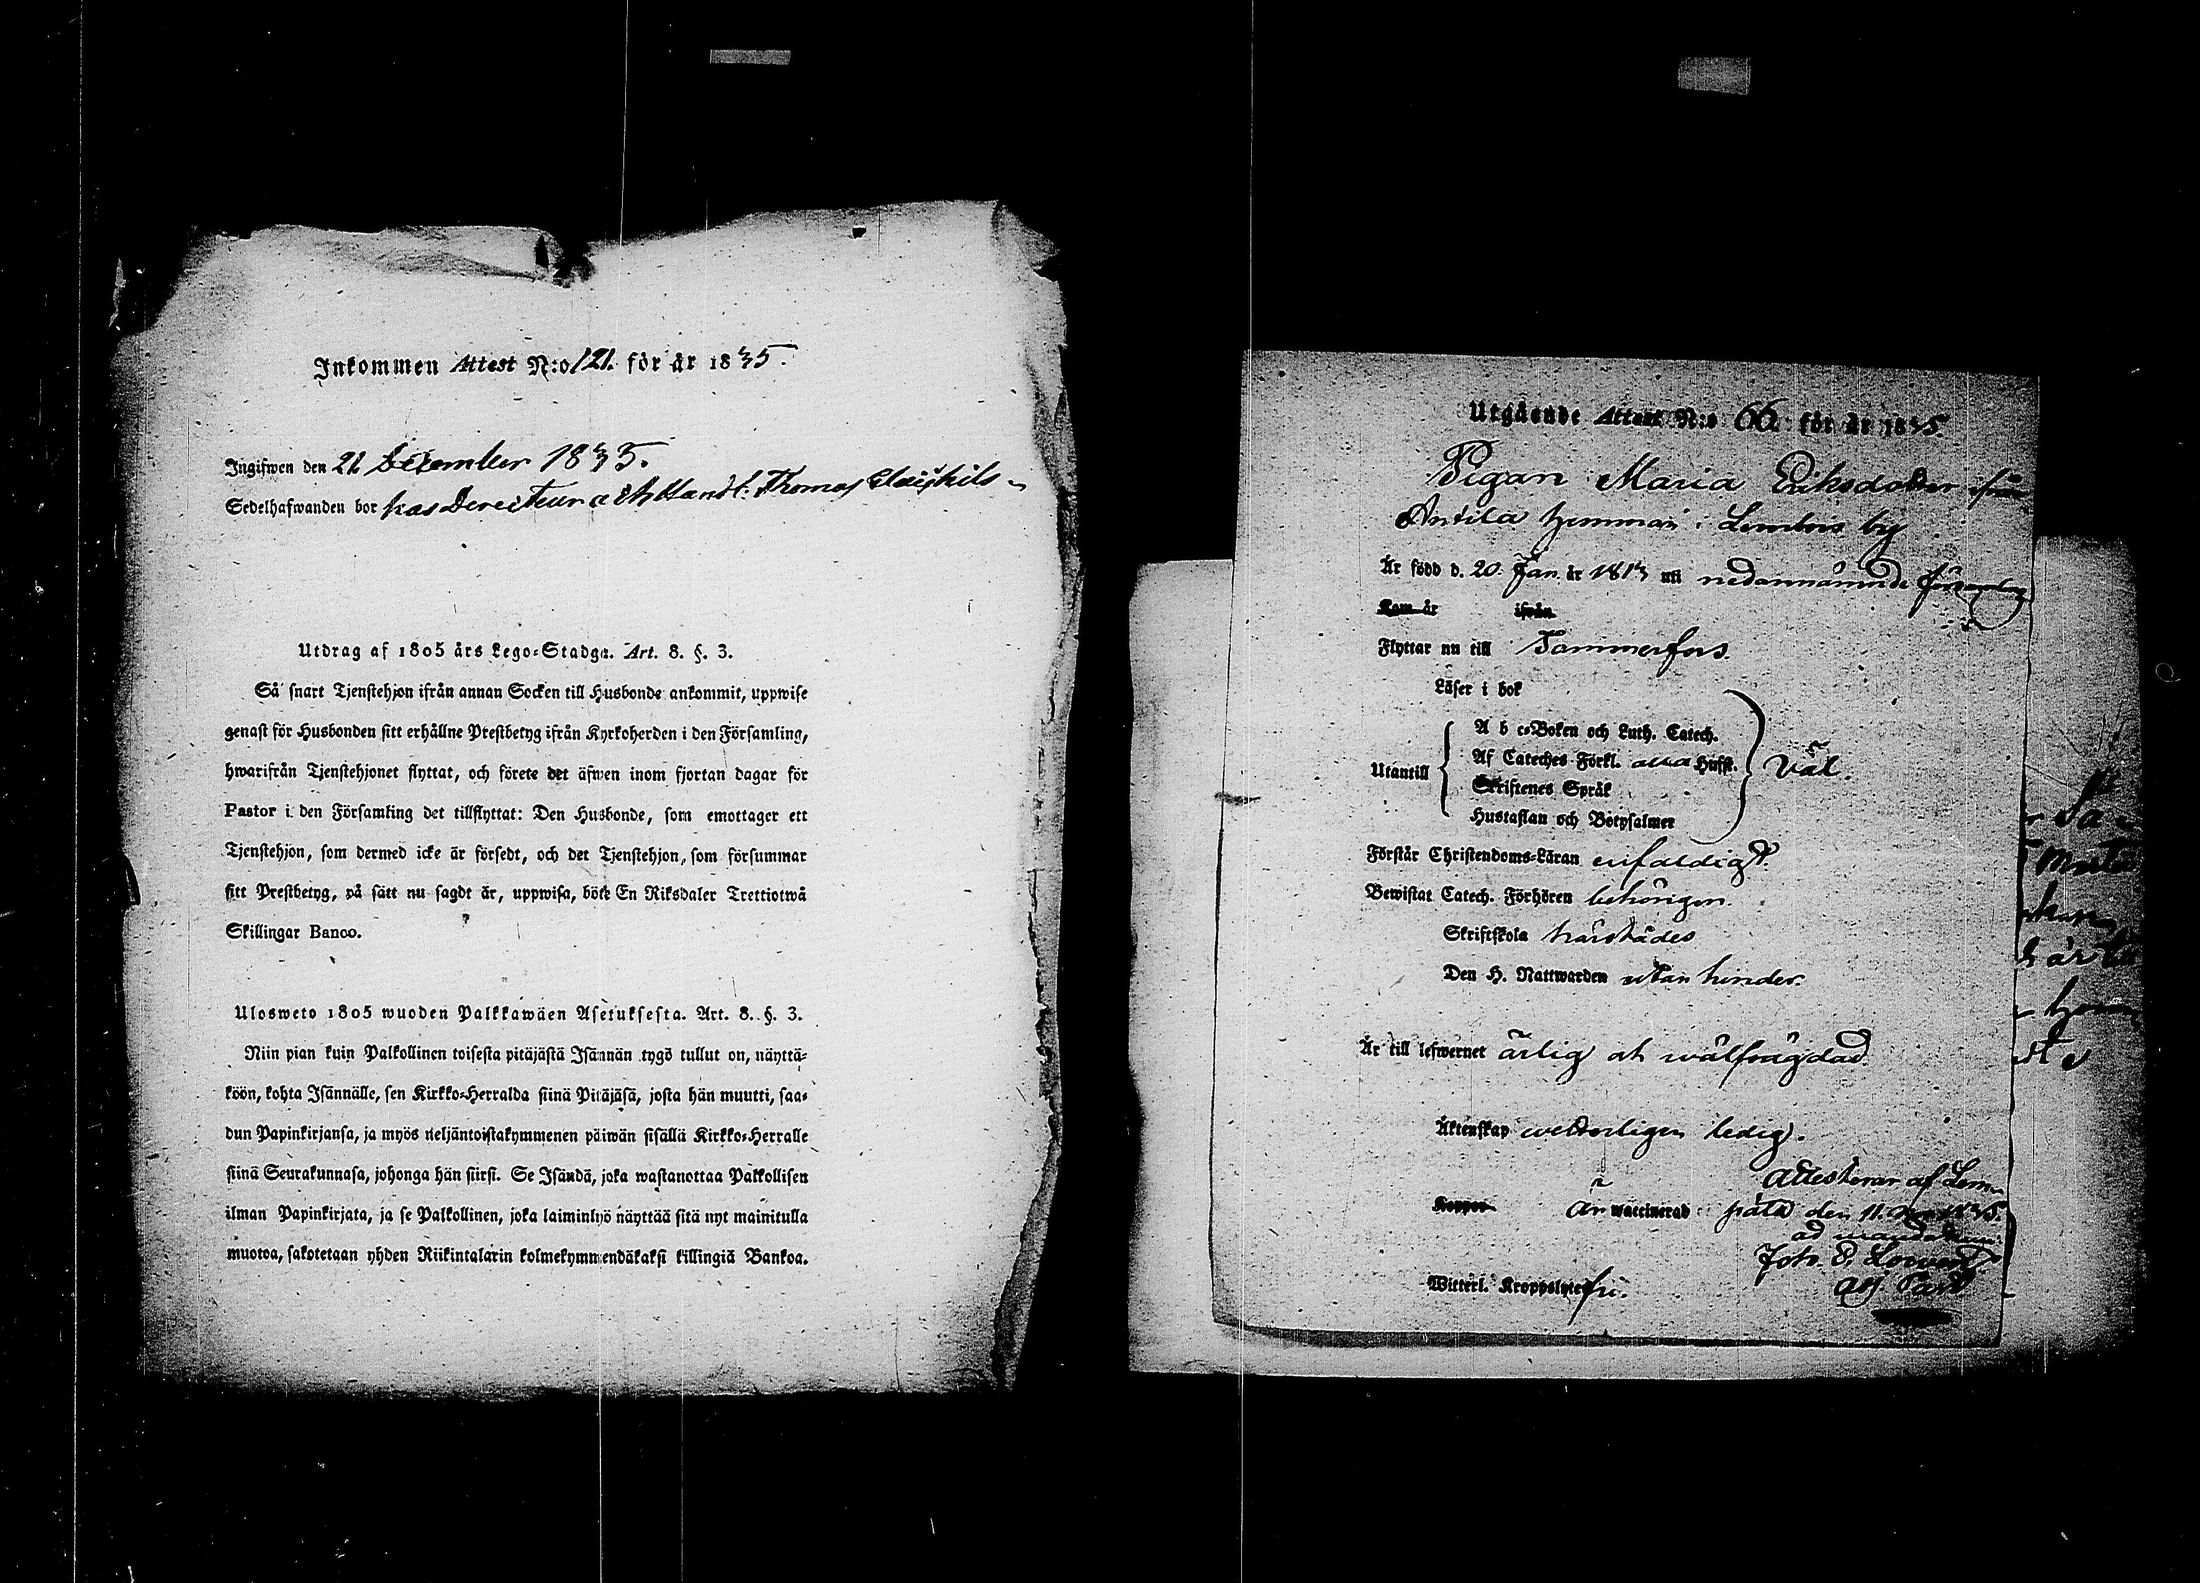 Inkommen Attest N:o 121. för år 1835.
Ingifwen den 21 December 1835.
Sedelhafwanden bor hos Directeur och Handl: Thomas
Utdrag af 1805 års Lego-Stadga. Art. 8. §. 3.
Så snart Tjenstehjon ifrån annan Socken till Husbonde ankommit, uppwise
genast för Husbonden sitt erhållne Prestbetyg ifrån Kyrkoherden i den Församling,
hwarifrån Tjenstehjonet flyttat, och förete det äfwen inom fjortan dagar för
Pastor i den Församling det tillflyttat: Den Husbonde, som emottager ett
Tjenstehjon, som dermed icke är försedt, och det Tjenstehjon, som försummar
sitt Prestbetyg, på sätt nu sagdt är, uppwisa, böte En Riksdaler Trettiotwå
Skillingar Banco.
Ulosweto 1805 wuoden Palkkawäen Asetuksesta. Art. 8. §. 3.
Niin pian kuin Palkollinen toisesta pitäjästä Isännän tygö tullut on, näyttä-
köön, kohta Isännälle, sen Kirkko-Herralda siinä Pitäjäsä, josta hän muutti, saa-
dun Papinkirjansa, ja myös neljäntoistakymmenen päiwän sisällä Kirkko-Herralle
siinä Seurakunnasa, johonga hän siirsi. Se Isändä, joka wastanottaa Palkollisen
ilman Papinkirjata, ja se Palkollinen, joka laiminlyö näyttää sitä nyt mainitulla
muotoa, sakotetaan yhden Riikintalarin kolmekymmendäkaksi killingiä Bankoa.
Utgående Attest N:o 66 för år 1835.
Pigan Maria Eriksdotter ifrån
Antila hemman i Lembois by
Är född d. 20 Jan. år 1813 uti nedannämnde församling
Kom år ifrån
Flyttar nu till Tammerfors.
Läser i bok
Utantill
A b c-Boken och Luth. Catech.
Af Cateches Förkl. Hufst.
Skriftenes Språk
Hustaflan och Botpsalmer
Väl.
Förstår Christendoms-Läran enfaldigt.
Bewistat Catech. Förhören behörigen.
Skriftskola härstädes
Den H. Nattwarden utan hinder.
Är till lefwernet ärlig och wälfrägdad.
Äktenskap wetterligen ledig.
Attesterar af Lem-
Koppor Är waccinerad päla den 11. 1835.
ad mandatum
Joh. E.
Adj. Past
Witterl. Kroppslyte fri.